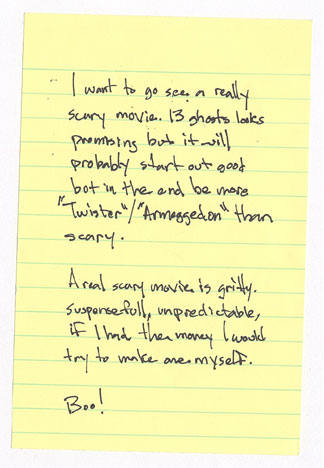 I want to go see a really
scary movie. 13 ghosts looks
promising but it will
probably start out good
bot in the end be more
"Twister"/"Armaggedon" than
scary.
A real scary movie is gritty.
suspensefull, unpredictable,
if I had the money I would
try to make one myself.
Boo!